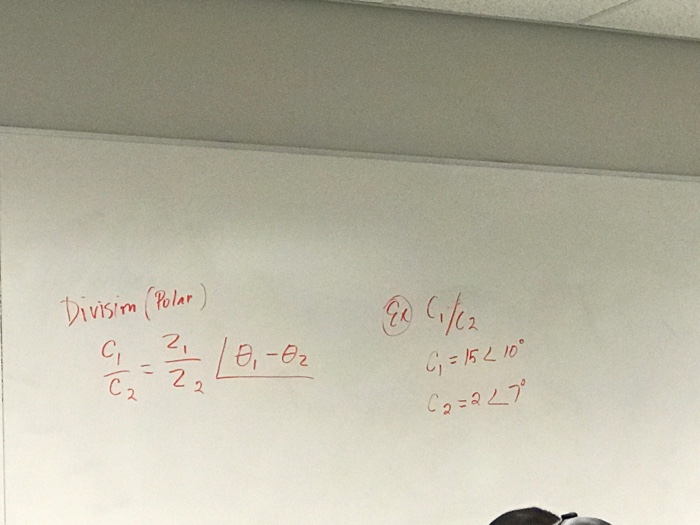 Division (Polar)
C₁/C₂ = Z₁/Z₂ ∠θ₁-θ₂
Ex C₁/C₂
C₁ = 15 ∠ 10°
C₂ = 2 ∠ 7°